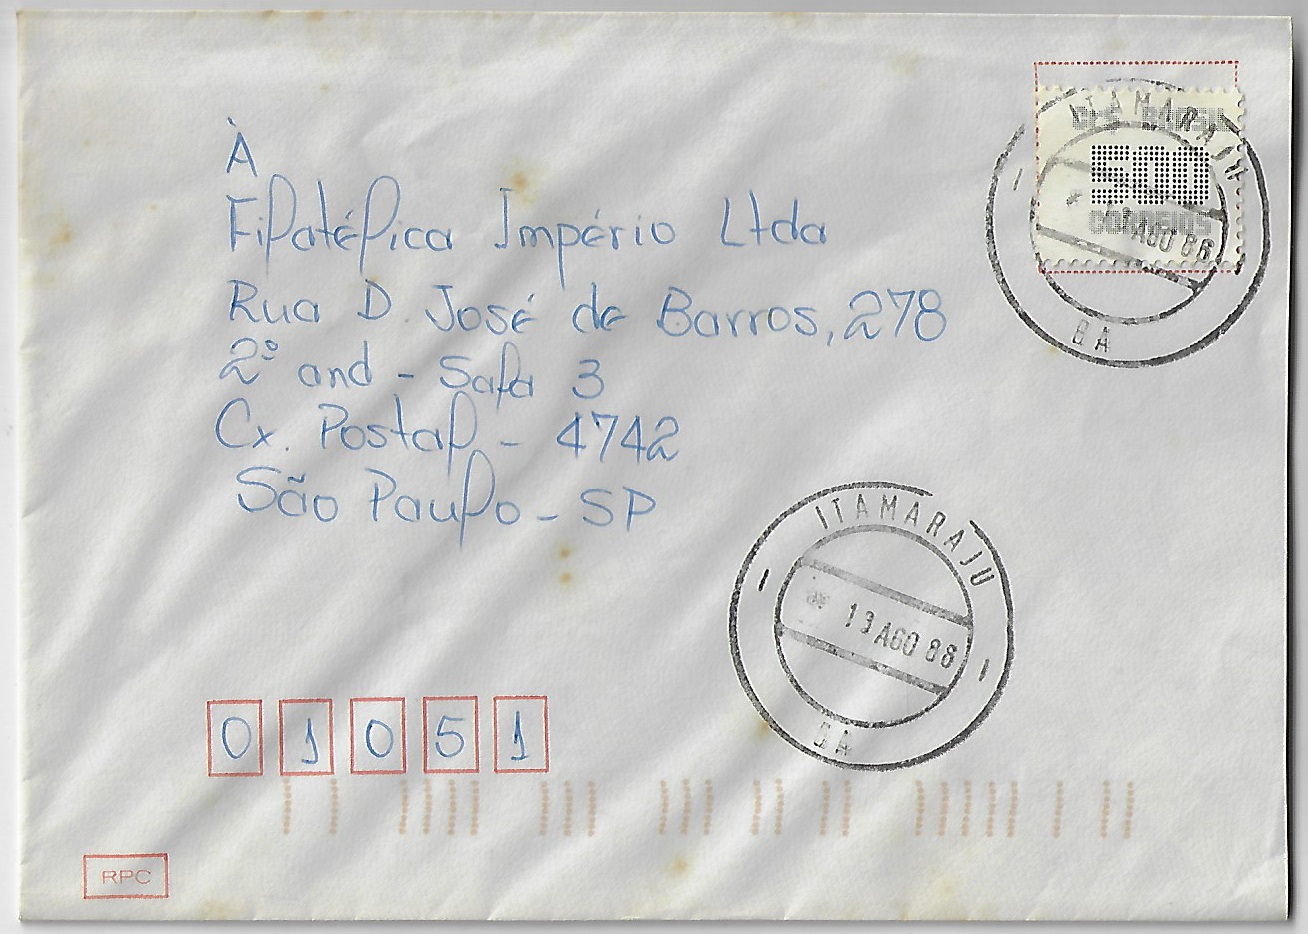 À
Filatélica Império Ltda
Rua D. José de Barros, 278
2º and - Sala 3
Cx. Postal - 4742
São Paulo - SP
ITAMARAJU
500
CORREIOS
AGO 86
BA
ITAMARAJU
13 AGO 86
BA
0 1 0 5 1
RPC